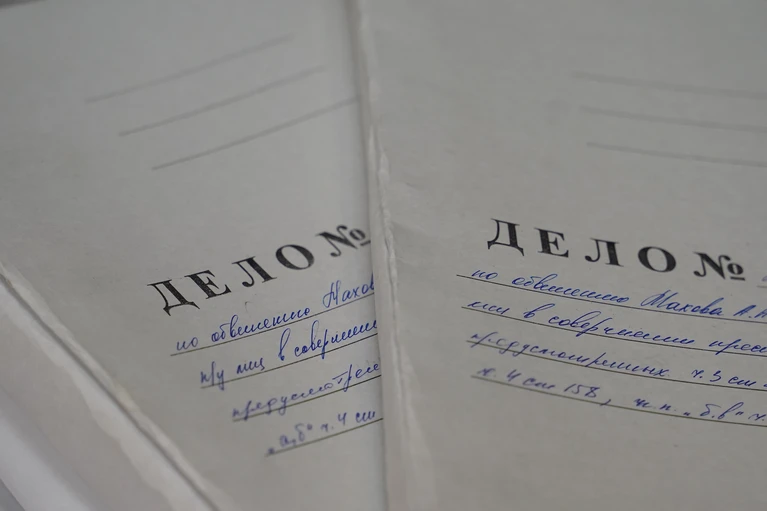 ДЕЛО №
по обвинению Махов
п/у лиц в совершени
предусмотрен
„а,б" ч. 4 ст
ДЕЛО №
по обвинению Махова А.А
лиц в совершении прес
предусмотренных ч. 3 ст.
ч. 4 ст 158, п.п. „б,в" ч.